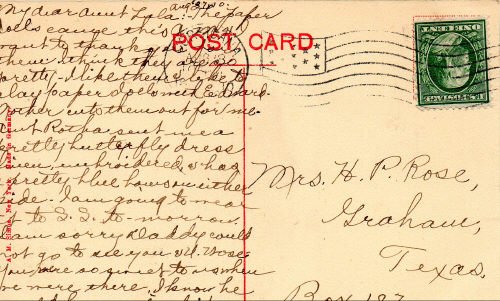 My dear Aunt Lola:- The paper
dolls came this A.M. I
want to thank you
them. think they are so
pretty. I like them & like to
play paper dolls with Edward.
Mother cuts them out for me.
Aunt sent me a
pretty butterfly dress
embroidered, & has
pretty blue bows on either
side. I am going to wear
it to S. S. to-morrow.
am sorry Daddy could
not go to see you
You were so sweet to us when
we were there. I know he
POST CARD
Made in Germany
New York
Mrs. H. P. Rose,
Graham,
Texas.
Box 187